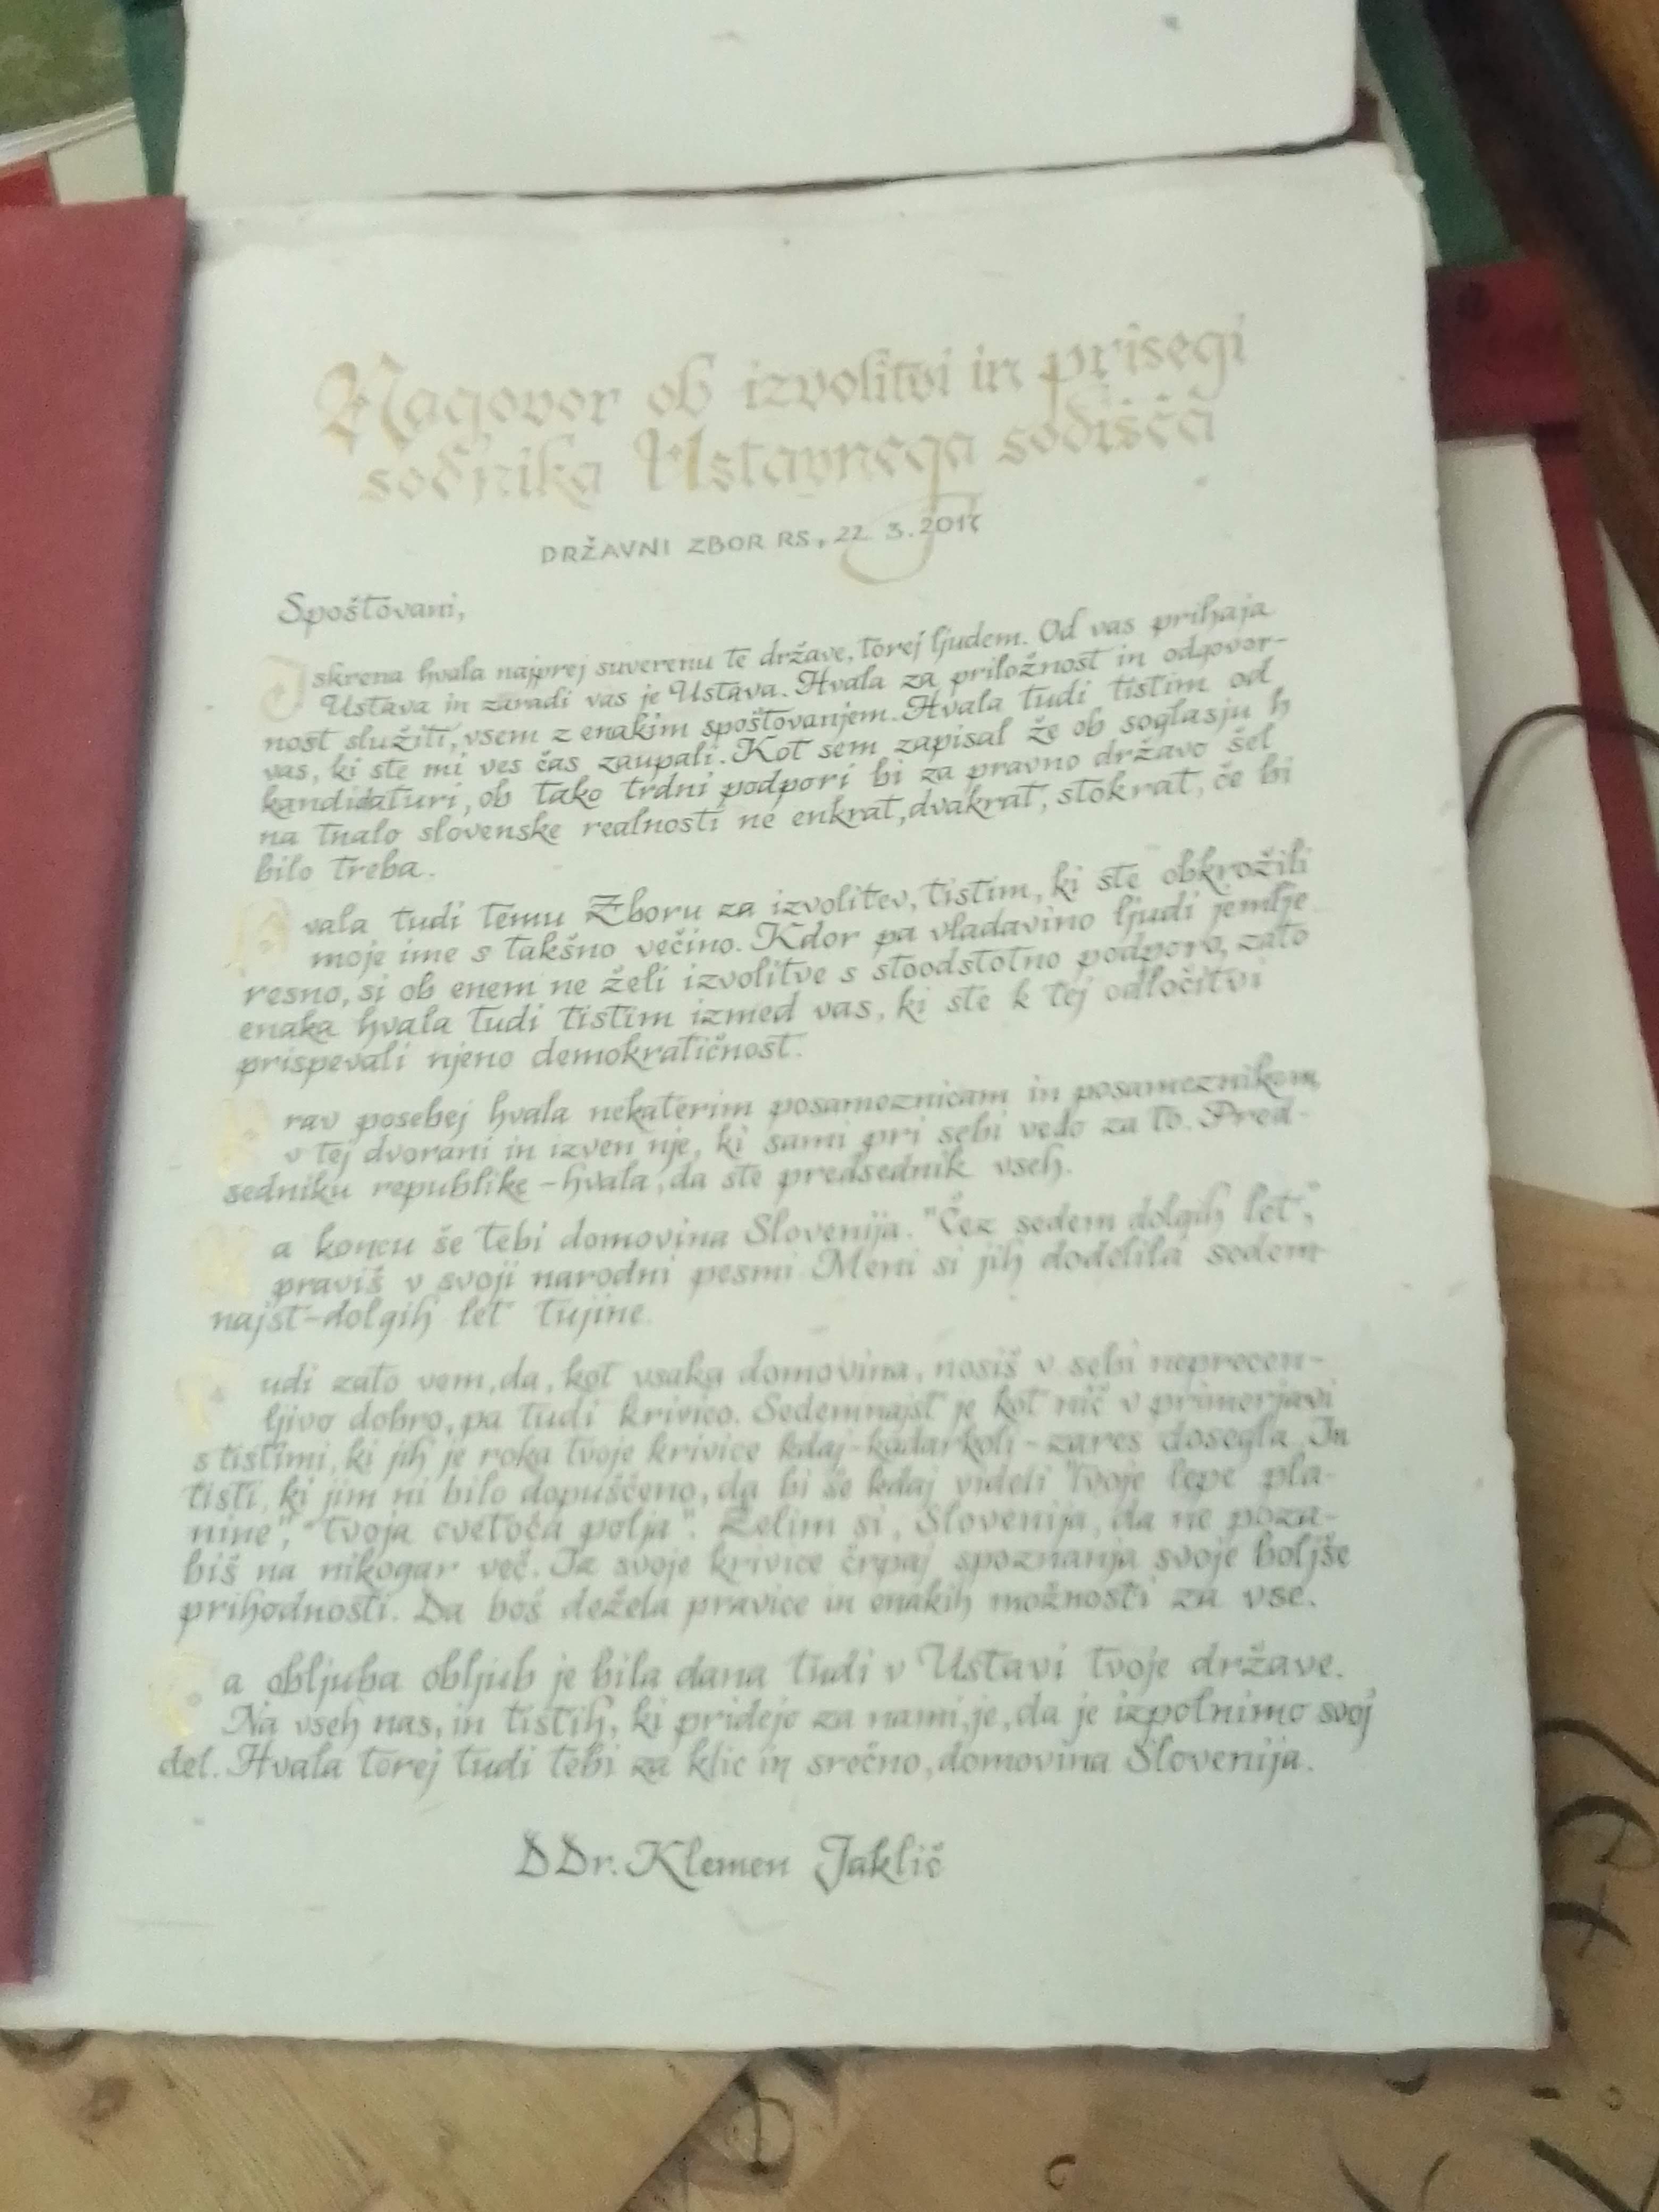 Nagovor ob izvolitvi in prisegi
sodnika Ustavnega sodišča
DRŽAVNI ZBOR RS, 22. 3. 2017
Spoštovani,
Iskrena hvala najprej suverenu te države, torej ljudem. Od vas prihaja
Ustava in zaradi vas je Ustava. Hvala za priložnost in odgovor-
nost služiti, vsem z enakim spoštovanjem. Hvala tudi tistim od
vas, ki ste mi ves čas zaupali. Kot sem zapisal že ob soglasju h
kandidaturi, ob tako trdni podpori bi za pravno državo šel
na tnalo slovenske realnosti ne enkrat, dvakrat, stokrat, če bi
bilo treba.
Hvala tudi temu Zboru za izvolitev, tistim, ki ste obkrožili
moje ime s takšno večino. Kdor pa vladavino ljudi jemlje
resno, si ob enem ne želi izvolitve s stoodstotno podporo, zato
enaka hvala tudi tistim izmed vas, ki ste k tej odločitvi
prispevali njeno demokratičnost.
Prav posebej hvala nekaterim posameznicam in posameznikom,
v tej dvorani in izven nje, ki sami pri sebi vedo za to. Pred-
sedniku republike – hvala, da ste predsednik vseh.
Na koncu še tebi domovina Slovenija. "Čez sedem dolgih let",
praviš v svoji narodni pesmi. Meni si jih dodelila sedem-
najst-dolgih let tujine.
Tudi zato vem, da, kot vsaka domovina, nosiš v sebi neprecen-
ljivo dobro, pa tudi krivico. Sedemnajst je kot nič v primerjavi
s tistimi, ki jih je roka tvoje krivice kdaj-kadarkoli – zares dosegla. In
tisti, ki jim ni bilo dopuščeno, da bi še kdaj videli "tvoje lepe pla-
nine", "tvoja cvetoča polja". Želim si, Slovenija, da ne poza-
biš na nikogar več. Iz svoje krivice črpaj spoznanja svoje boljše
prihodnosti. Da boš dežela pravice in enakih možnosti za vse.
Ta obljuba obljub je bila dana tudi v Ustavi tvoje države.
Na vseh nas, in tistih, ki pridejo za nami, je, da je izpolnimo svoj
del. Hvala torej tudi tebi za klic in srečno, domovina Slovenija.
DDr. Klemen Jaklič